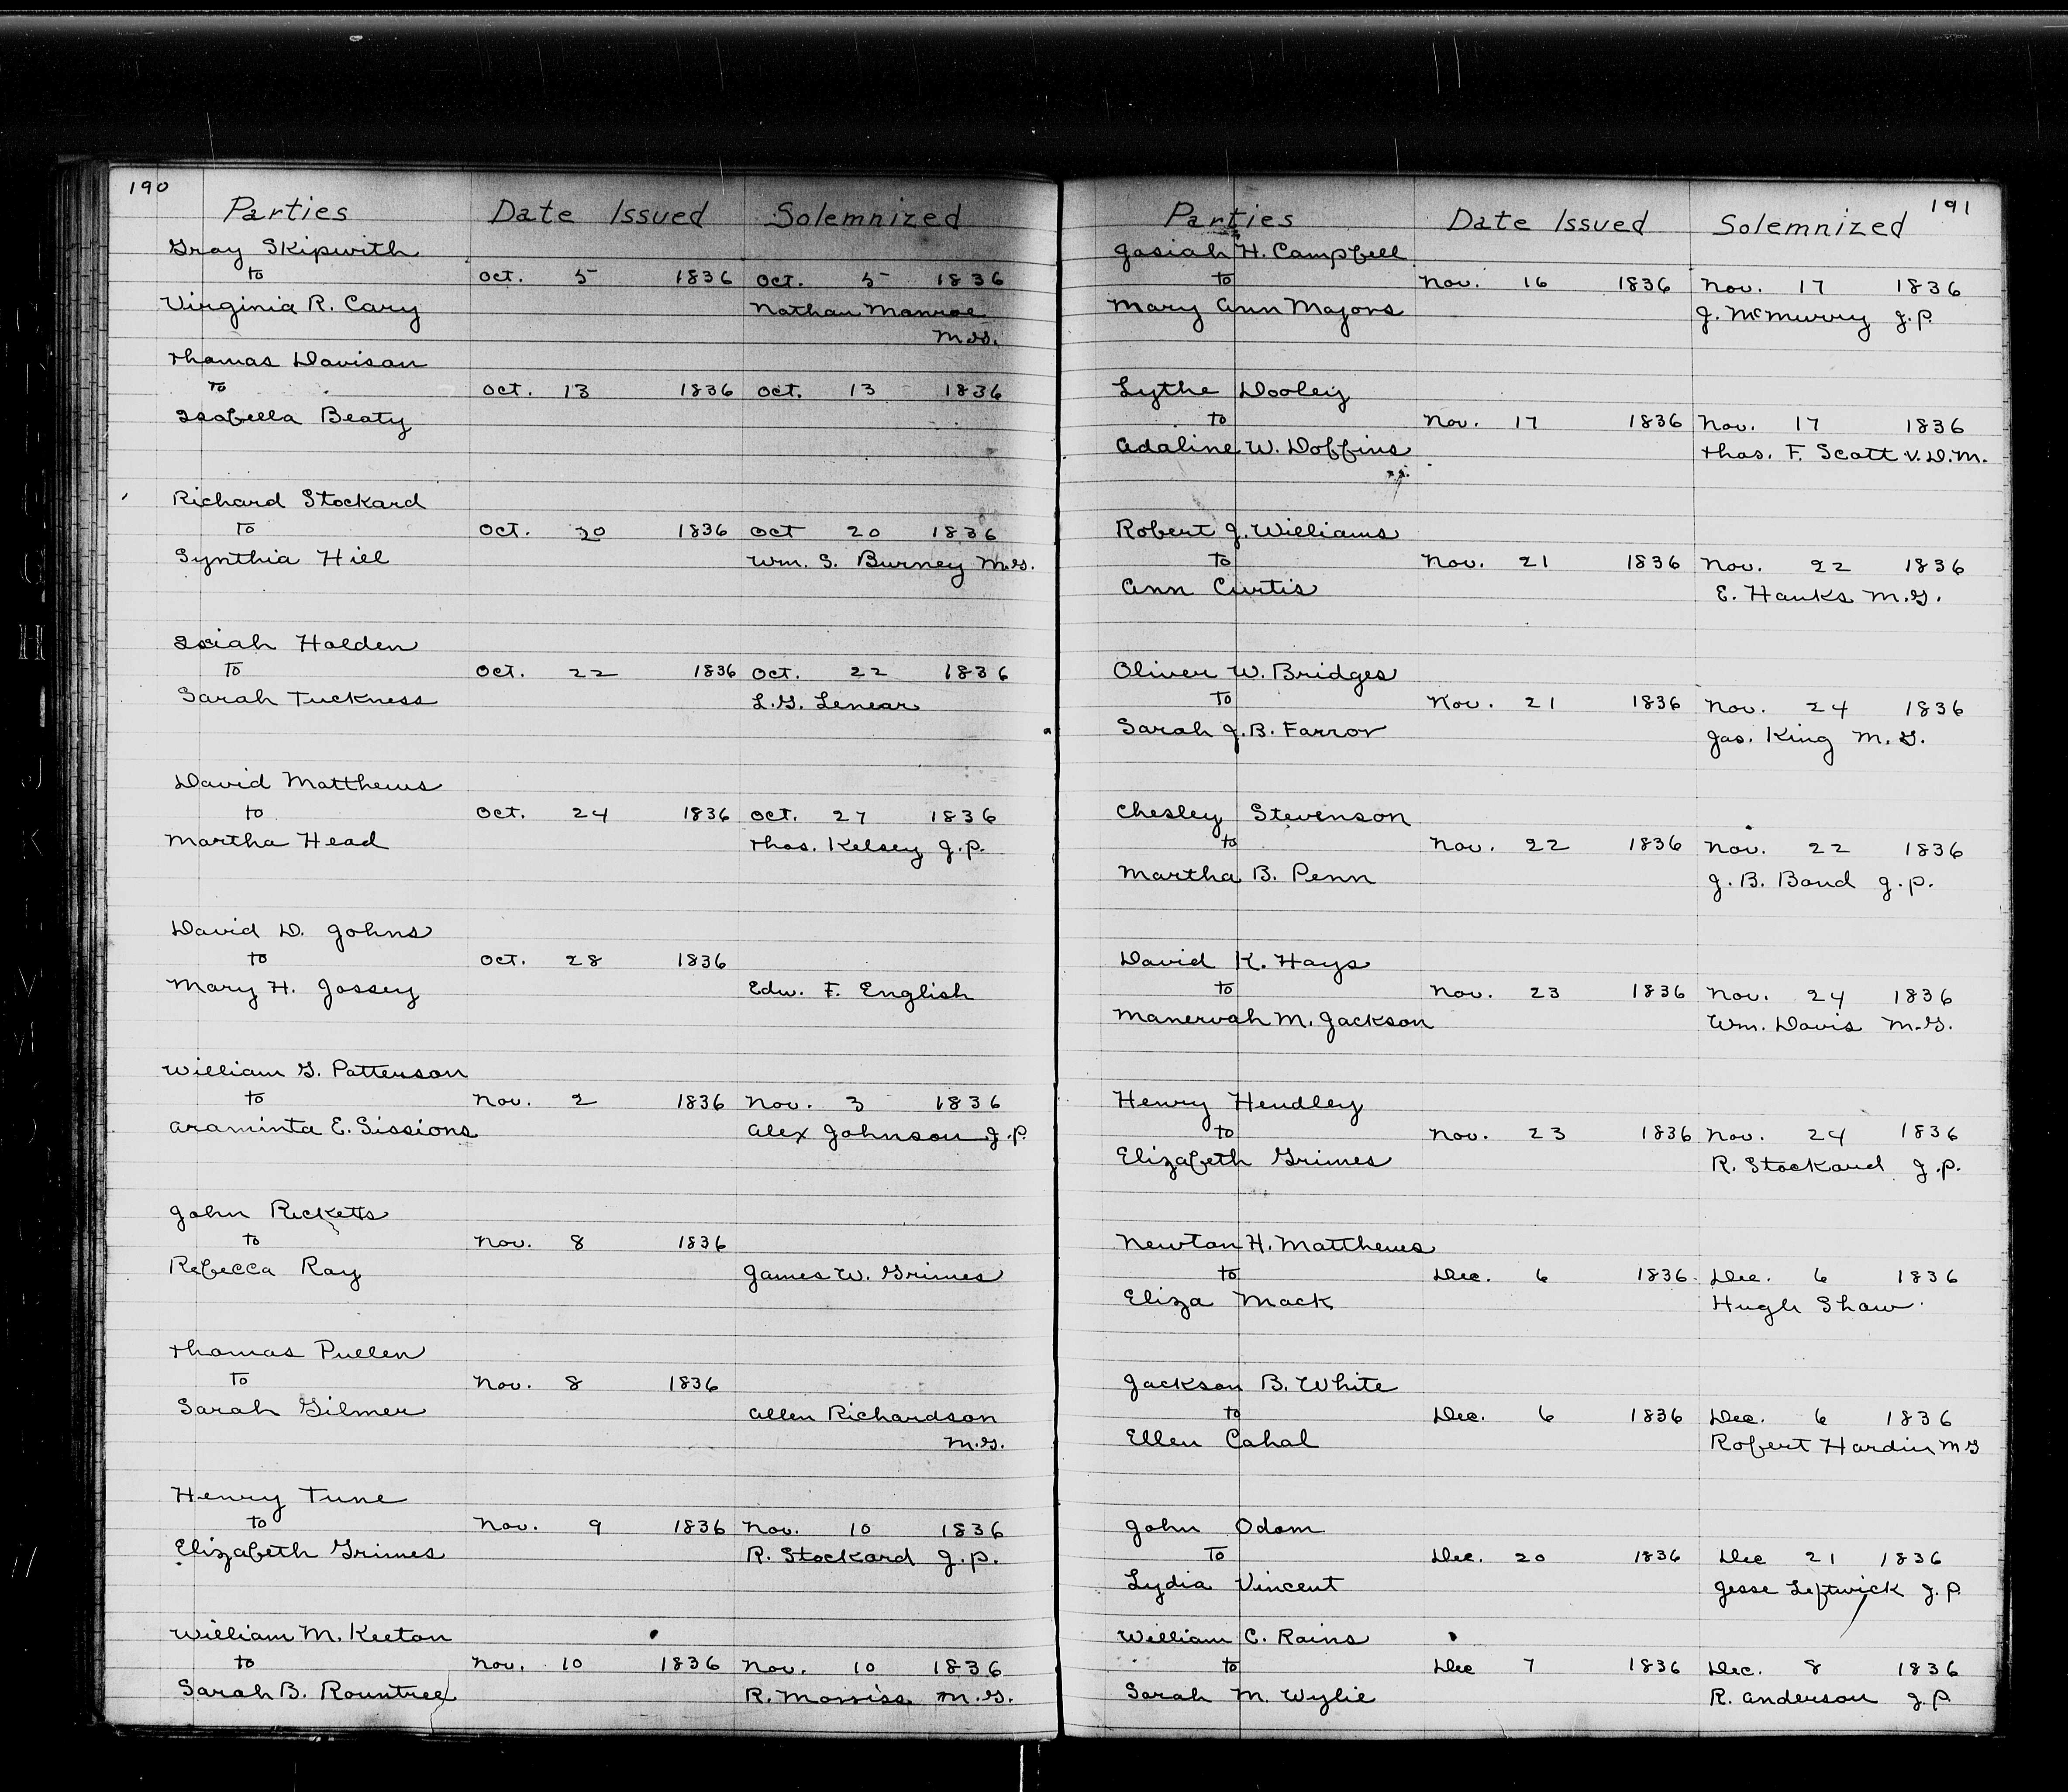 190
Parties Date Issued Solemnized
Gray Skipwith
to Oct. 5 1836 Oct. 5 1836
Virginia R. Cary Nathan Monroe
M.G.
Thomas Davison
To Oct. 13 1836 Oct. 13 1836
Isabella Beaty
Richard Stockard
To Oct. 20 1836 Oct 20 1836
Synthia Hill Wm. S. Burney M.G.
Isiah Holden
To Oct. 22 1836 Oct. 22 1836
Sarah Tuckness L.G. Lenear
David Matthews
to Oct. 24 1836 Oct. 27 1836
Martha Head Thos. Kelsey J.P.
David D. Johns
to Oct. 28 1836
Mary H. Jossey Edw. F. English
William G. Patterson
to Nov. 2 1836 Nov. 3 1836
Araminta E. Sissions Alex Johnson J.P.
John Ricketts
to Nov. 8 1836
Rebecca Ray James W. Grimes
Thomas Pullen
To Nov. 8 1836
Sarah Gilmer Allen Richardson
M.G.
Henry Tune
to Nov. 9 1836 Nov. 10 1836
Elizabeth Grimes R. Stockard J.P.
William M. Keeton
to Nov. 10 1836 Nov. 10 1836
Sarah B. Rountree R. Morriss M.G.
191
Parties Date Issued Solemnized
Josiah H. Campbell
to Nov. 16 1836 Nov. 17 1836
Mary Ann Majors J. McMurry J.P.
Lythe Dooley
to Nov. 17 1836 Nov. 17 1836
Adaline W. Dobbins Thos. F. Scott V.D.M.
Robert J. Williams
To Nov. 21 1836 Nov. 22 1836
Ann Curtis E. Hanks M.G.
Oliver W. Bridges
To Nov. 21 1836 Nov. 24 1836
Sarah J.B. Farror Jas. King M.G.
Chesley Stevenson
to Nov. 22 1836 Nov. 22 1836
Martha B. Penn J.B. Bond J.P.
David K. Hays
to Nov. 23 1836 Nov. 24 1836
Manervah M. Jackson Wm. Davis M.G.
Henry Hendley
to Nov. 23 1836 Nov. 24 1836
Elizabeth Grimes R. Stockard J.P.
Newton H. Matthews
to Dec. 6 1836. Dec. 6 1836
Eliza Mack Hugh Shaw.
Jackson B. White
to Dec. 6 1836 Dec. 6 1836
Ellen Cahal Robert Hardin M G
John Odom
To Dec. 20 1836 Dec 21 1836
Lydia Vincent Jesse Leftwick J.P.
William C. Rains
to Dec 7 1836 Dec. 8 1836
Sarah M. Wylie R. Anderson J.P.